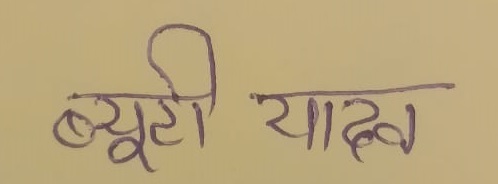 ब्यूटी यादव